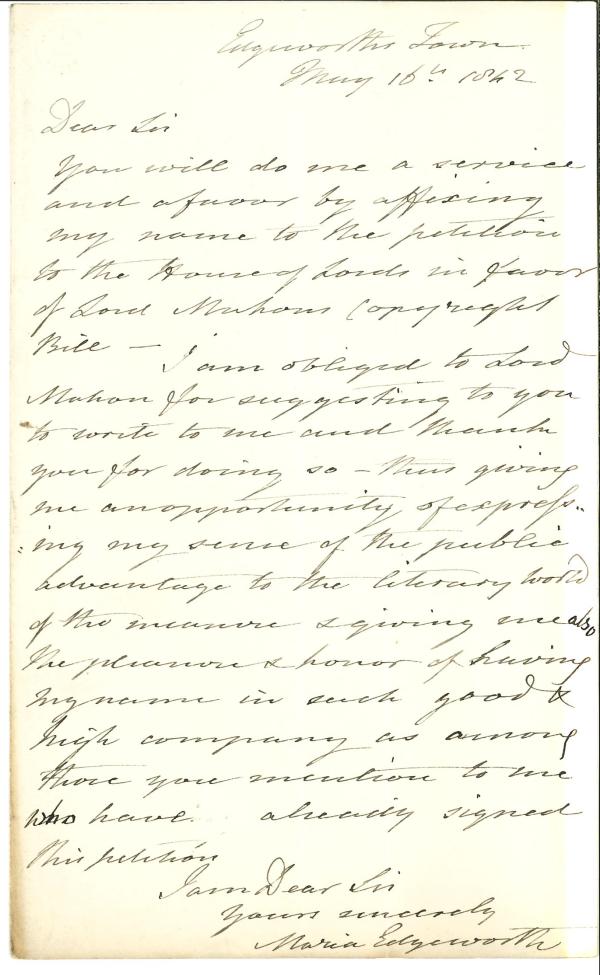 Edgeworths Town.
May 16th 1842
Dear Sir
You will do me a service
and a favor by affixing
my name to the petition
to the House of Lords in favor
of Lord Mahons Copyright
Bill —
I am obliged to Lord
Mahon for suggesting to you
to write to me and thank
you for doing so – thus giving
me an opportunity of express..
:ing my sense of the public
advantage to the literary world
of the measure & giving me also
the pleasure & honor of having
my name in such good &
high company as among
those you mention to me
who have already signed
this petition
I am Dear Sir
Yours sincerely
Maria Edgeworth